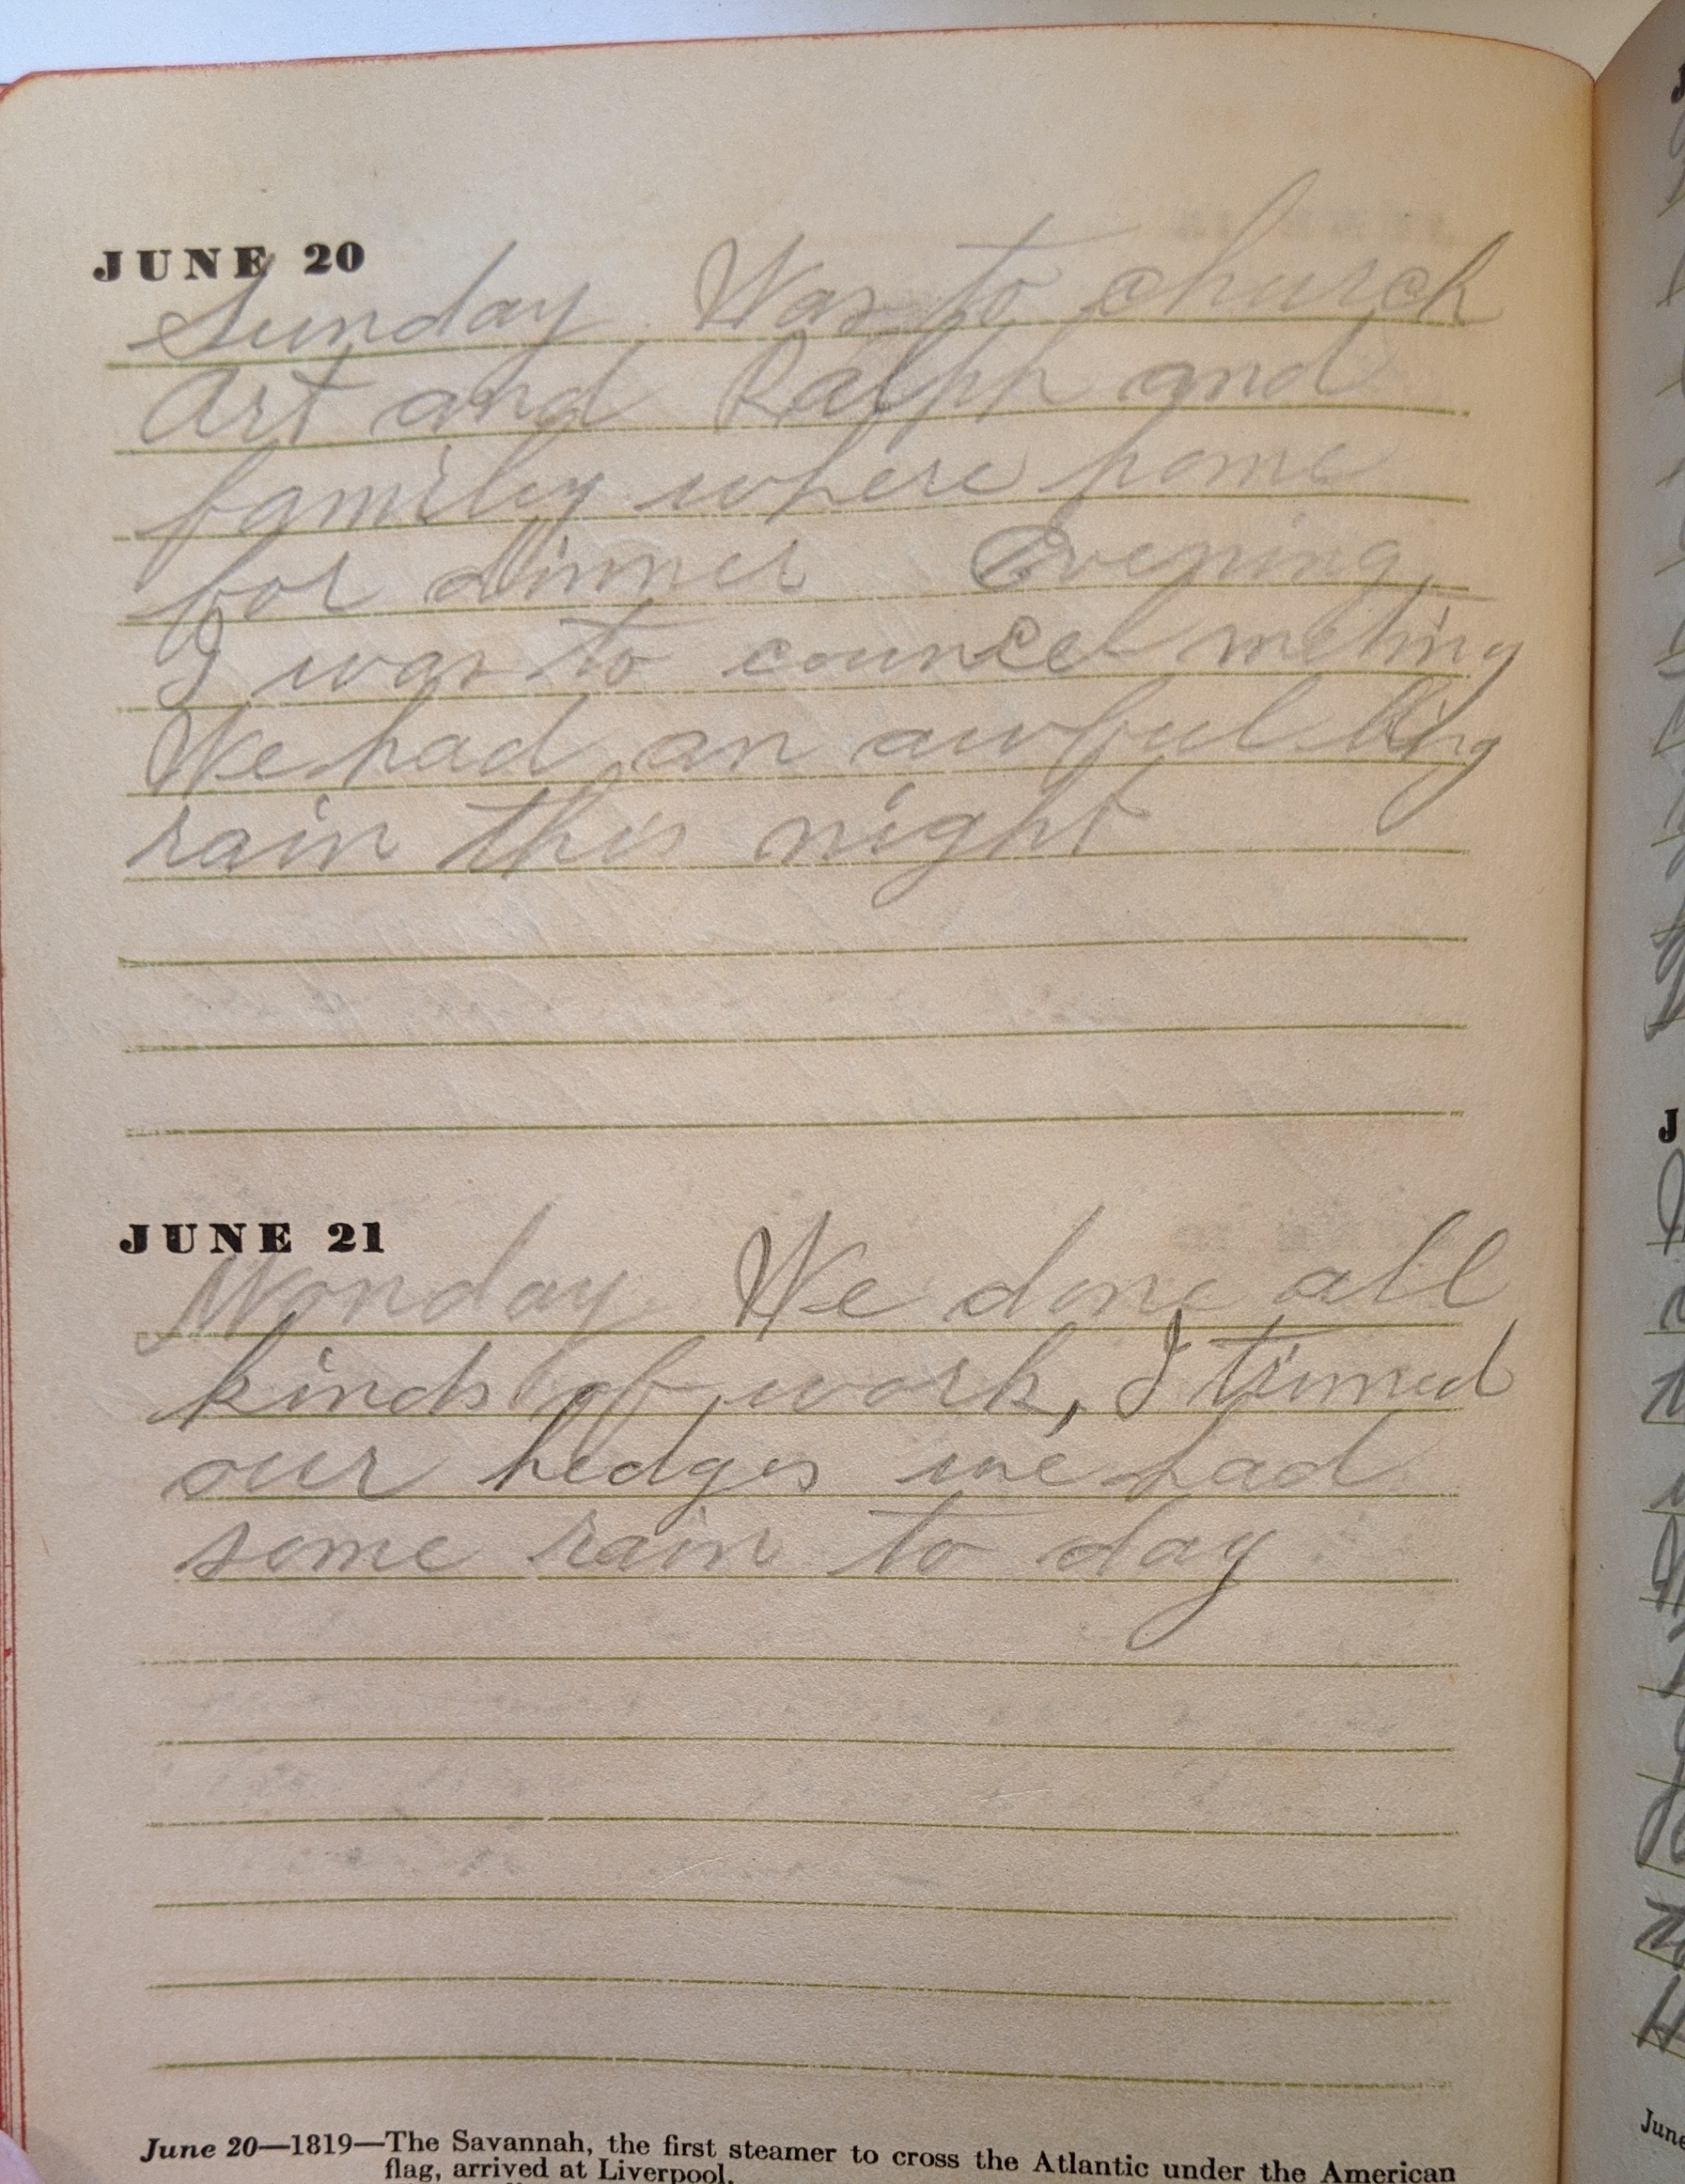 JUNE 20
Sunday Was to church
Art and Ralph and
family where home
for dinner Evening
I was to councel meting
We had an awful big
rain this night
JUNE 21
Monday We done all
kinds of work, I trimed
our hedges we had
some rain to day
June 20—1819—The Savannah, the first steamer to cross the Atlantic under the American
flag, arrived at Liverpool.